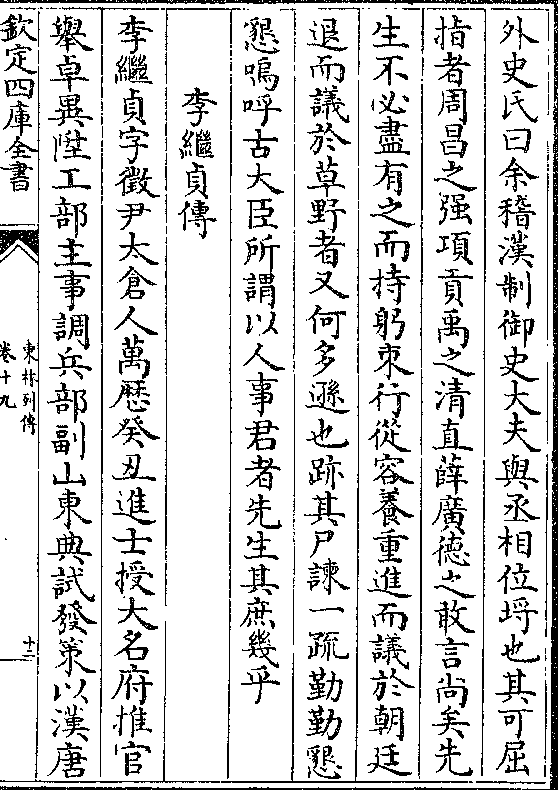 外史氏曰余稽漢制御史大夫與丞相位埒也其可屈
指者周昌之强項貢禹之清直薛廣德之敢言尚矣先
生不必盡有之而持躬朿行從容養重進而議於朝廷
退而議於草野者又何多遜也跡其尸諫一疏勤勤懇
懇嗚呼古大臣所謂以人事君者先生其庶幾乎
李繼貞傳
李繼貞字徵尹太倉人萬歷癸丑進士授大名府推官
舉卓異陞工部主事調兵部副山東典試發策以漢唐
欽定四庫全書
東林列傳
卷十九
十三